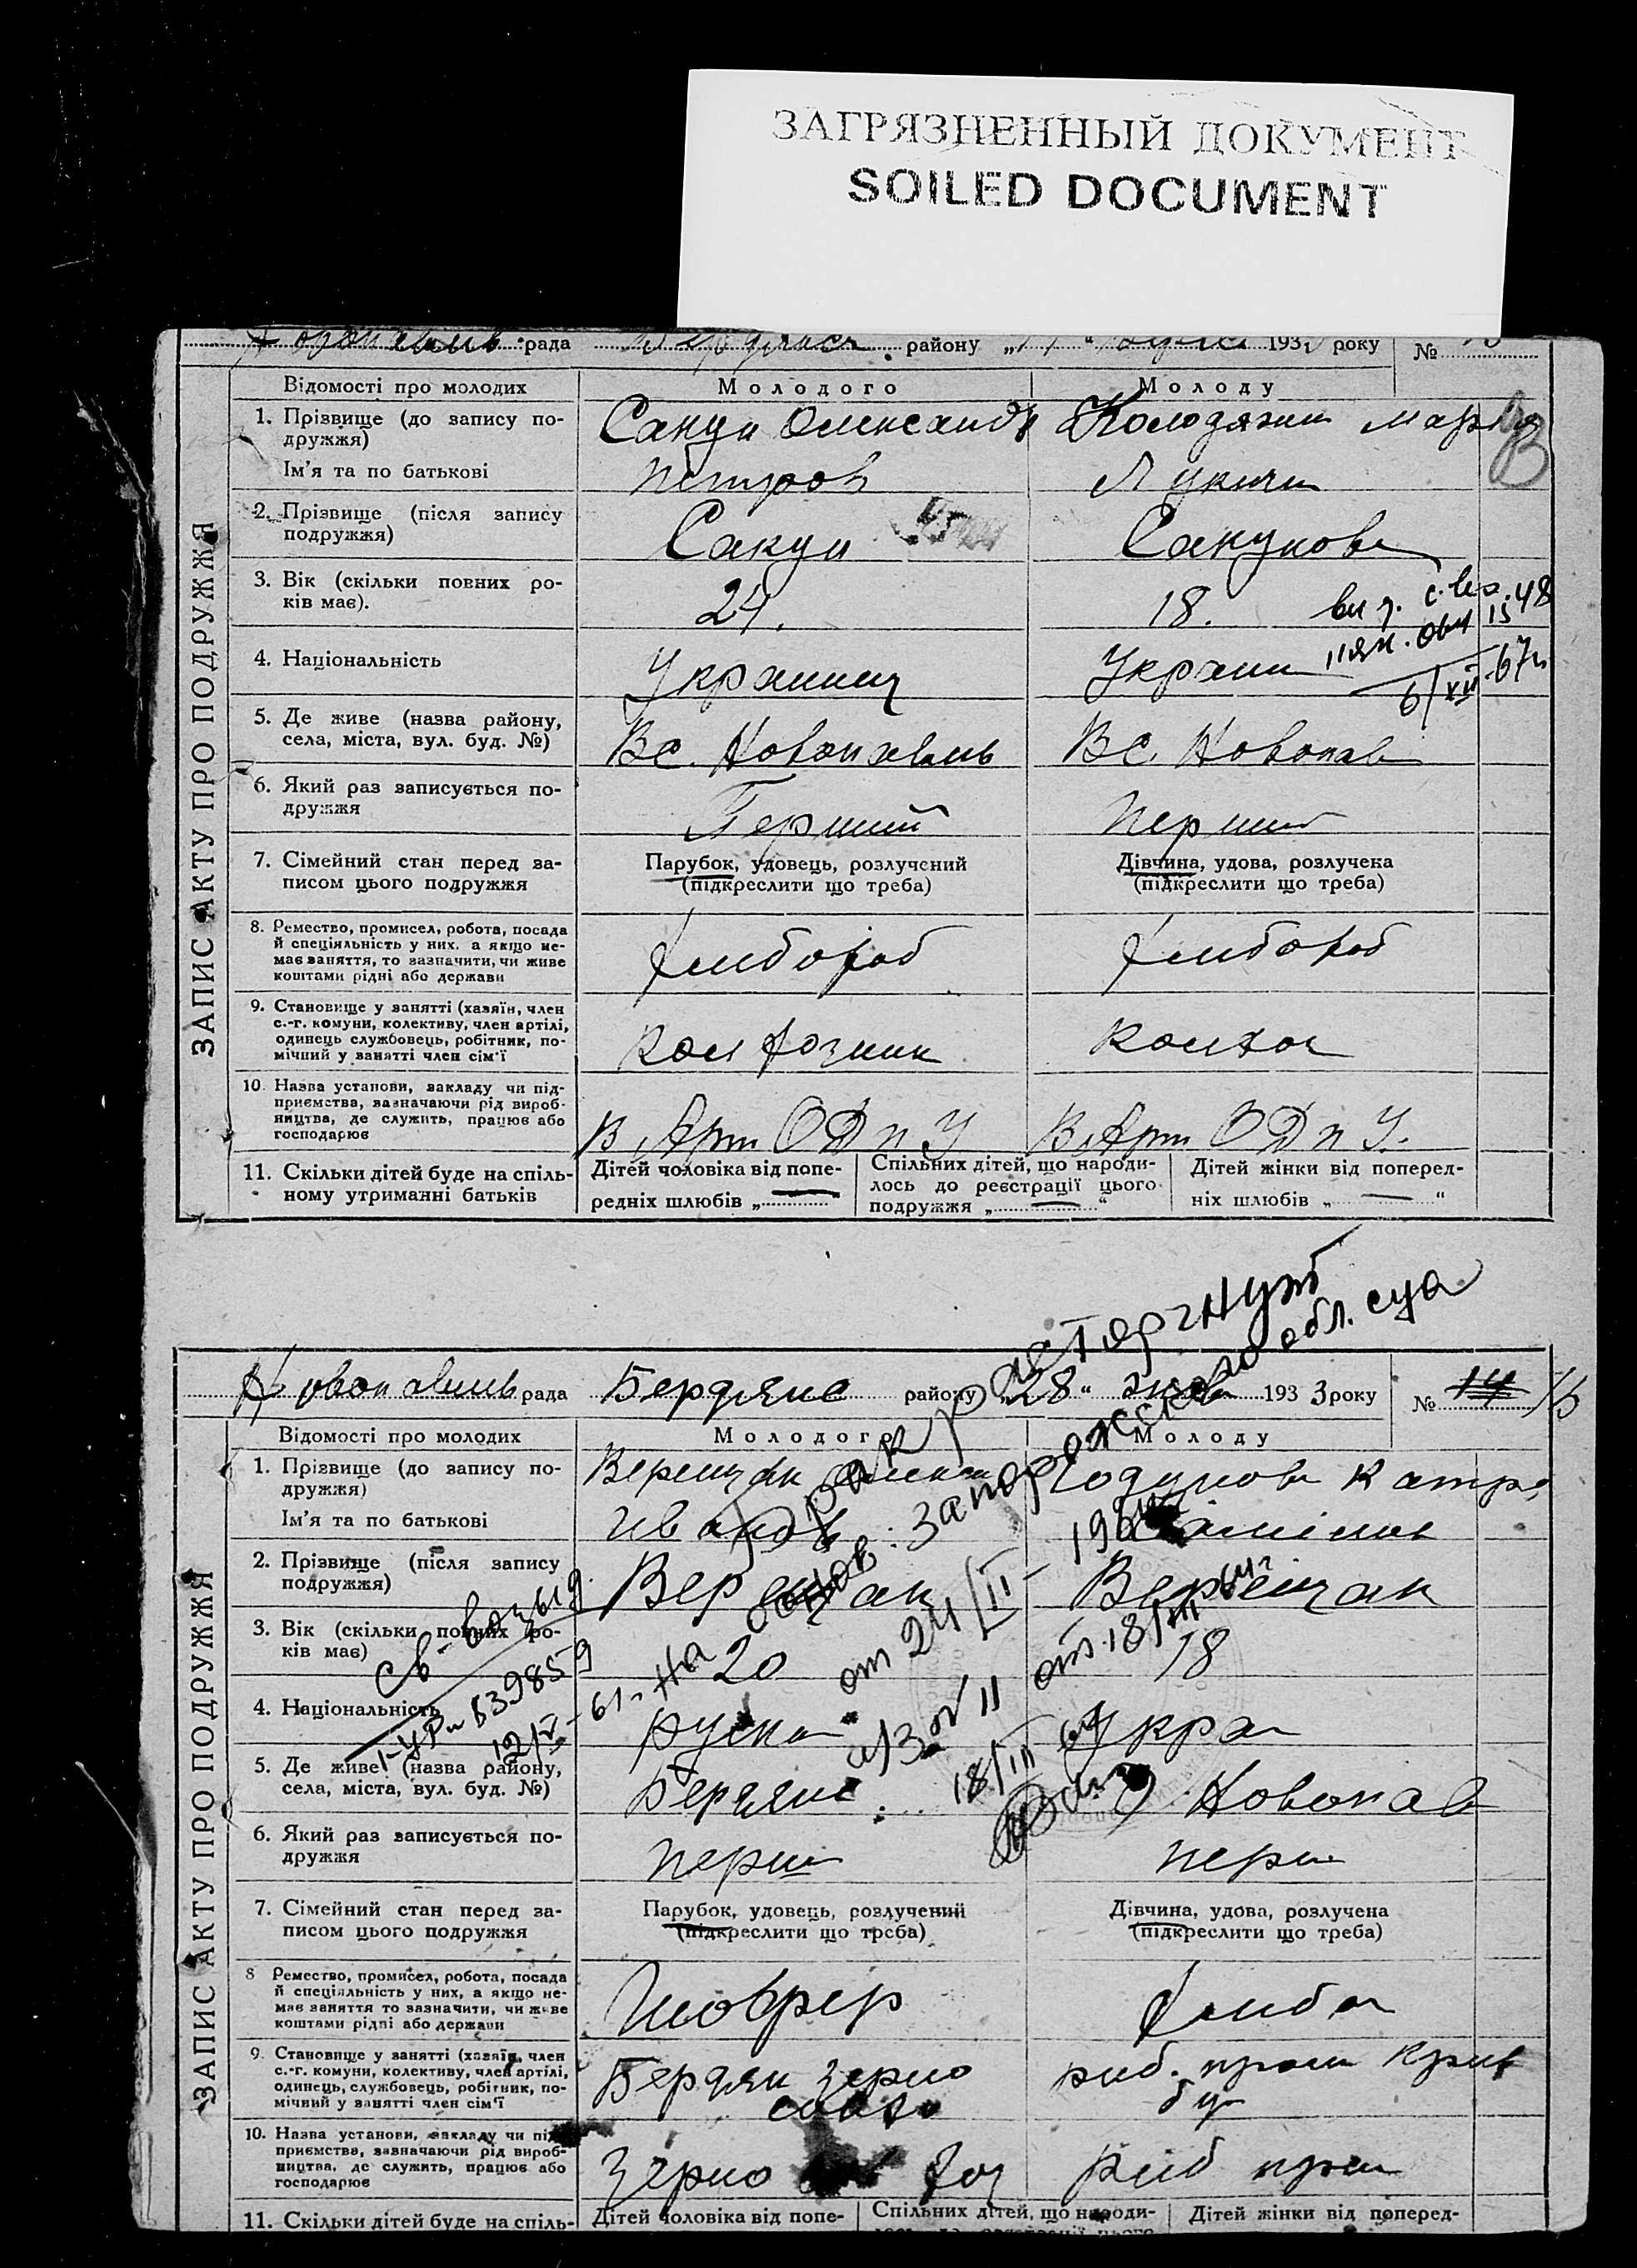 ЗАГРЯЗНЕННЫЙ ДОКУМЕНТ
SOILED DOCUMENT
рада району 193 року №
ЗАПИС АКТУ ПРО ПОДРУЖЖЯ
Відомості про молодих Молодого Молоду
1. Прізвище (до запису по-
дружжя)
Сакун Олександр Колодяжн Мария
Ім'я та по батькові Петров
2. Прізвище (після запису
подружжя)
Сакун Сакунова
3. Вік (скільки повних ро-
ків має).
18.
4. Національність Українец Україн
6/XII-67г
5. Де живе (назва району,
села, міста, вул. буд. №)
Вс. Новопавлів Вс. Новопав
6. Який раз записується по-
дружжя
Перший Перший
7. Сімейний стан перед за-
писом цього подружжя
Парубок, удовець, розлучений
(підкреслити що треба)
Дівчина, удова, розлучена
(підкреслити що треба)
8. Ремество, промисел, робота, посада
й спеціяльність у них, а якщо не-
має заняття, то зазначити, чи живе
коштами рідні або держави
Хлибороб Хлибороб
9. Становище у занятті (хазяїн, член
с.-г. комуни, колективу, член артілі,
одинець службовець, робітник, по-
мічний у занятті член сім'ї
Колхозник Колхоз
10. Назва установи, закладу чи під-
приємства, зазначаючи рід вироб-
ництва, де служить, працює або
господарює
В Арт ОДПУ В Арт ОДПУ.
11. Скільки дітей буде на спіль-
ному утриманні батьків
Дітей чоловіка від попе-
редніх шлюбів „ —
Спільних дітей, що народи-
лось до реєстрації цього
подружжя „ — “
Дітей жінки від поперед-
ніх шлюбів „ — “
Брак расторгнут
на основ. Запорожского обл. суда
от 24/II-
а/з № 11 от 18/III
18/III 64
Новопавлів рада Бердянс району „28“ 1933 року № 14 15
ЗАПИС АКТУ ПРО ПОДРУЖЖЯ
Відомості про молодих Молодого Молоду
1. Прізвище (до запису по-
дружжя)
Верещак Годунова Катря
Ім'я та по батькові Иванов
2. Прізвище (після запису
подружжя)
Верещак Верещак
3. Вік (скільки повних ро-
ків має)
20 18
4. Національність Руски Укра
5. Де живе (назва району,
села, міста, вул. буд. №)
Бердянс Новопав
6. Який раз записується по-
дружжя
Перш Перш
7. Сімейний стан перед за-
писом цього подружжя
Парубок, удовець, розлучений
(підкреслити що треба)
Дівчина, удова, розлучена
(підкреслити що треба)
8 Ремество, промисел, робота, посада
й спеціяльність у них, а якщо не-
має заняття то зазначити, чи живе
коштами рідні або держави
Шофер Хлибо
9. Становище у занятті (хазяїн, член
с.-г. комуни, колективу, член артілі,
одинець, службовець, робітник, по-
мічний у занятті член сім'ї
Бердян Зерно
совхо
риб. пром
10. Назва установи, закладу чи під-
приємства, зазначаючи рід вироб-
ництва, де служить, працює або
господарює
Зерно риб пром
11. Скільки дітей буде на спіль-
Дітей чоловіка від попе-
Спільних дітей, що народи-
Дітей жінки від поперед-